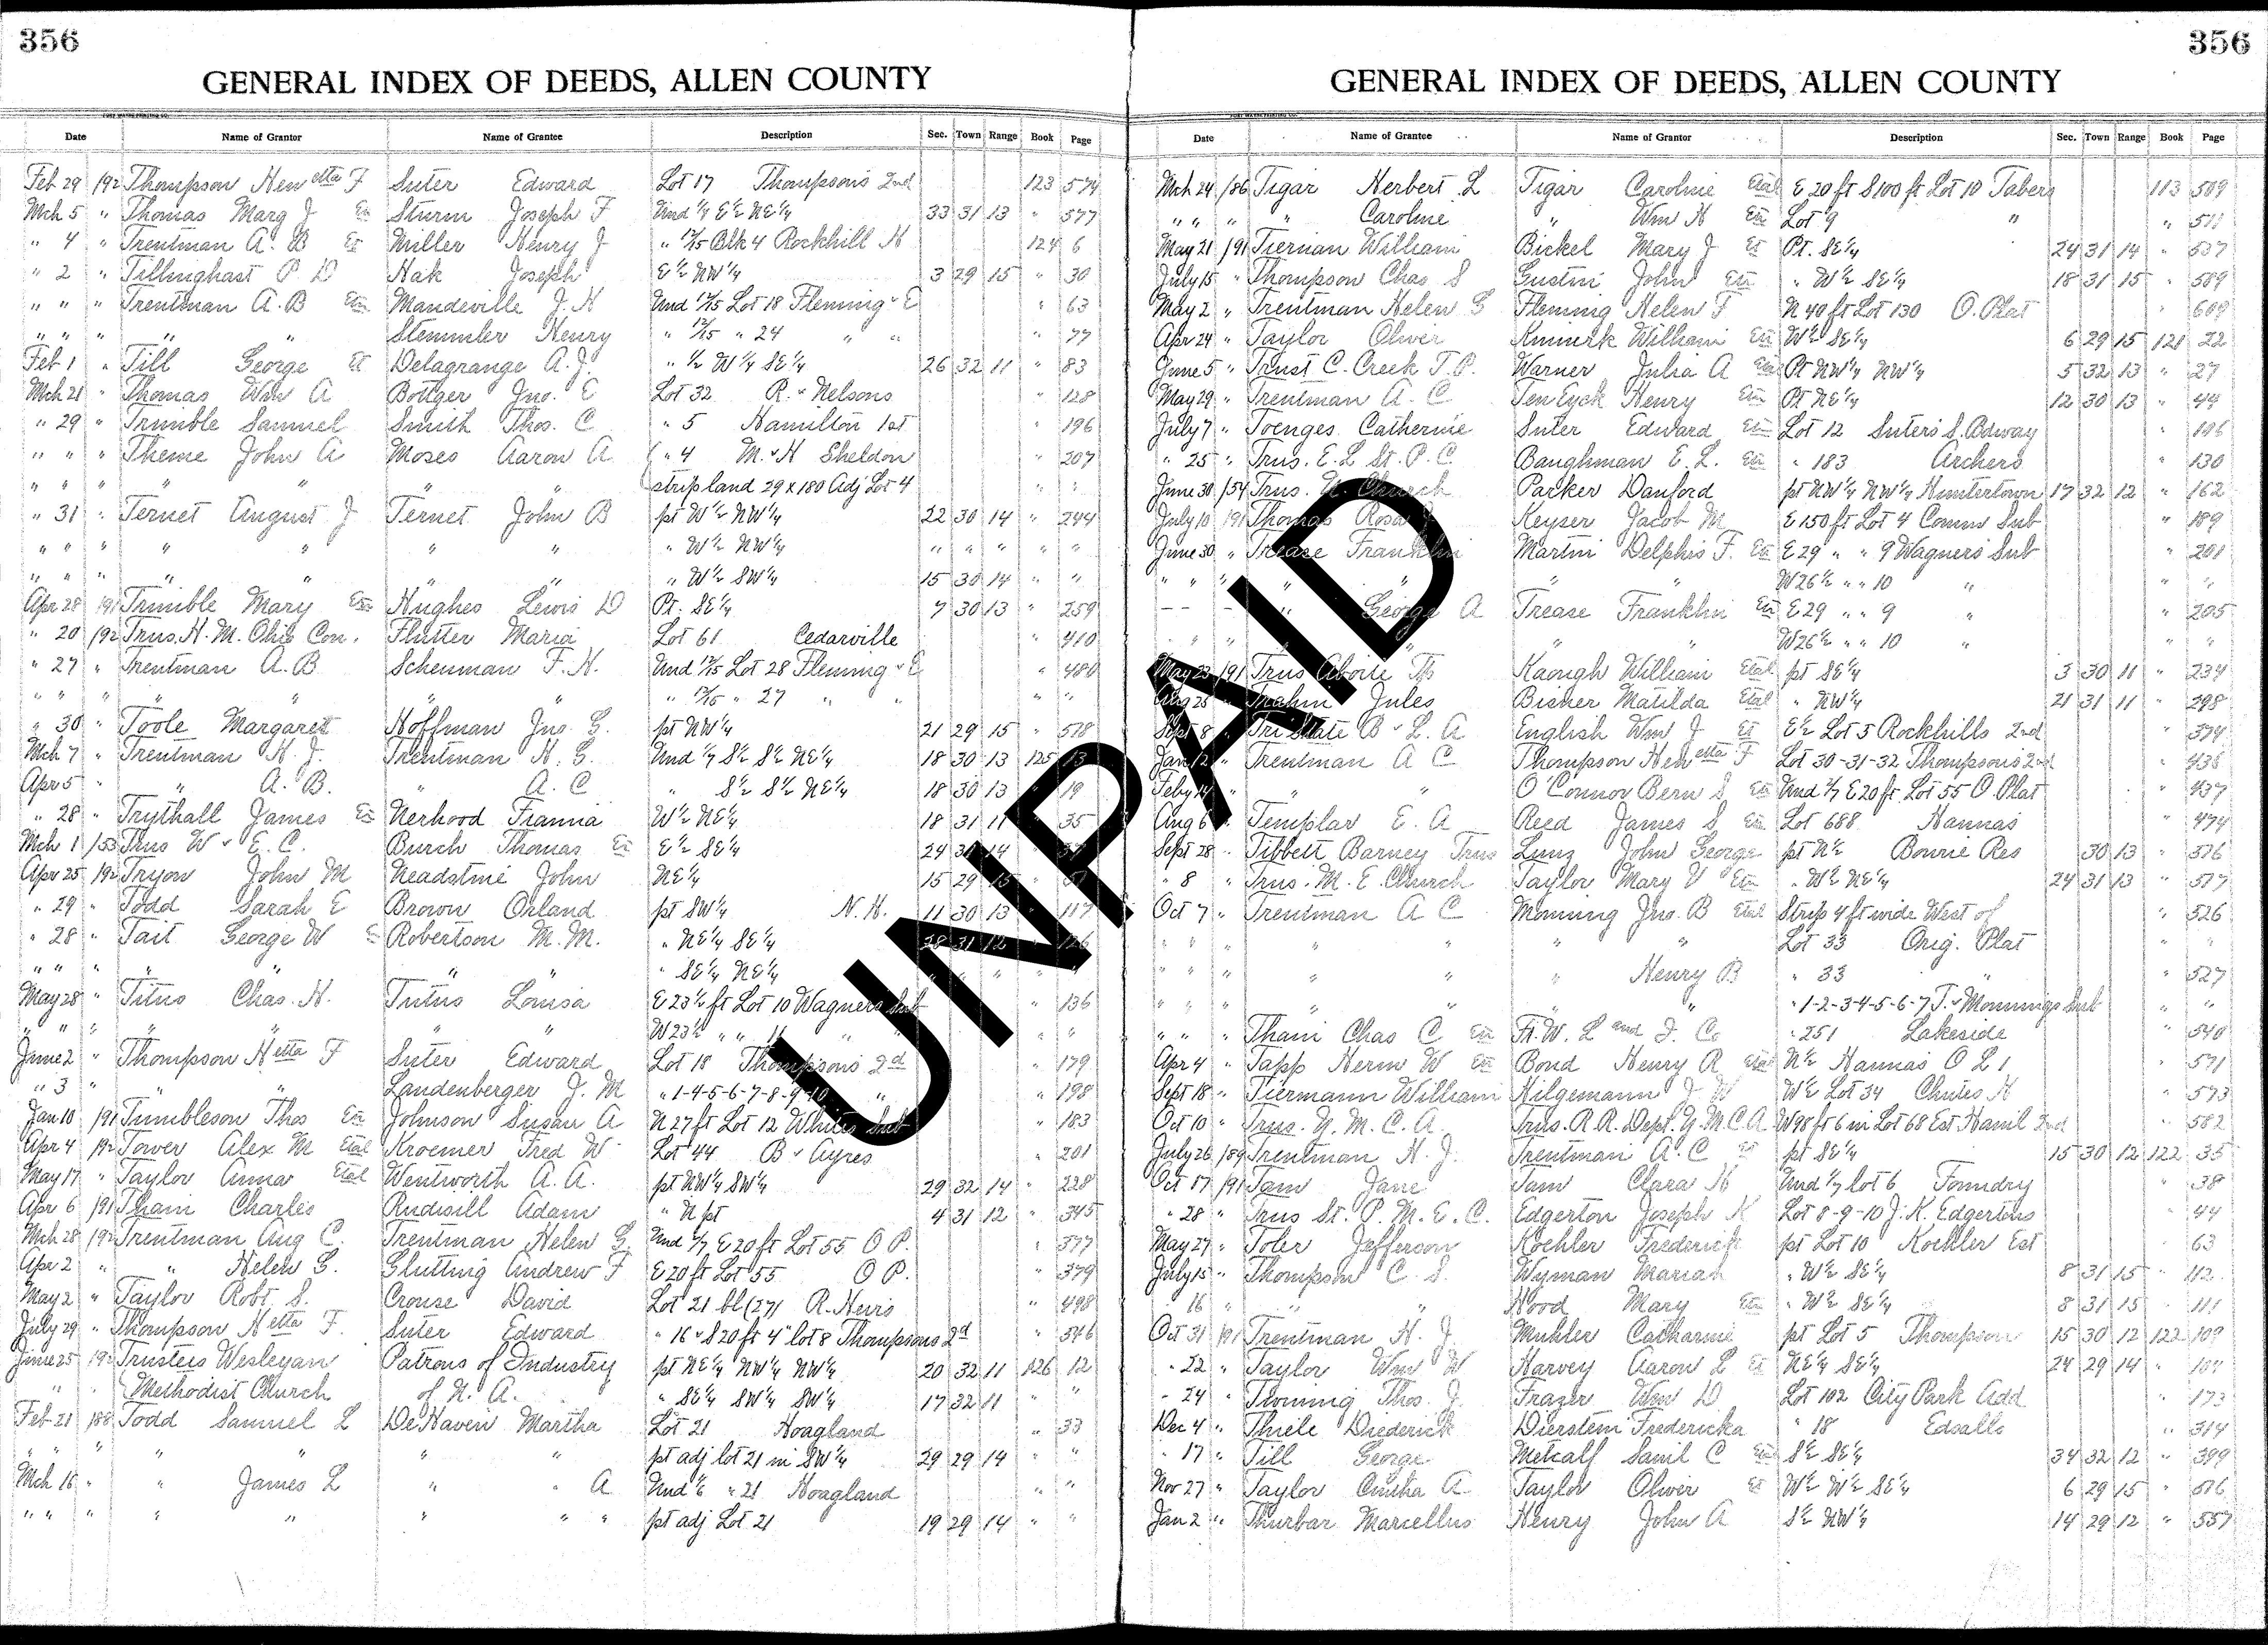 356
GENERAL INDEX OF DEEDS, ALLEN COUNTY
Date Name of Grantor Name of Grantee Description Sec. Town Range Book Page
Feb 29 192 Thompson Henetta F Suter Edward Lot 17 Thompson's 2nd 123 574
Mch 5 " Thomas Marg J Sturm Joseph F Und 1/7 E½ NE¼ 33 31 13 " 577
" 4 " Trentman A. B Et Miller Henry J " 12/15 Blk 4 Rockhill H 124 6
" 2 " Tillinghast P D Hak Joseph E½ NW¼ 3 29 15 " 30
" " " Trentman A. B Mandeville J. H Und 12/15 Lot 18 Fleming & E " 63
" " " " " Stemmler Henry " 12/15 " 24 " " " 77
Feb 1 " Till George Et Delagrange A. J. " ½ W¼ SE¼ 26 32 11 " 83
Mch 21 " Thomas Wm A Bottger Jno. E Lot 32 R. & Nelsons " 128
" 29 " Trimble Samuel Smith Thos. C " 5 Hamilton 1st " 196
" " " Theme John A Moses Aaron A " 4 M. & H Sheldon " 207
" " " " " " " strip land 29 x 180 Adj Lot 4 " "
" 31 " Ternet August J Ternet John B pt W½ NW¼ 22 30 14 " 244
" " " " " " " " W½ NW¼ " " " " "
" " " " " " " " W½ SW¼ 15 30 14 " "
Apr 28 191 Trimble Mary Hughes Lewis D Pt. SE¼ 7 30 13 " 259
" 20 192 Trus. H. M. Ohio Con. Flutter Maria Lot 61 Cedarville " 410
" 27 " Trentman A. B Scheuman F. H. Und 12/15 Lot 28 Fleming & E " 480
" " " " " " " " 12/15 " 27 " " " "
" 30 " Toole Margaret Hoffman Jno. G. pt NW¼ 21 29 15 " 578
Mch 7 " Trentman H. J. Trentman H. G. Und 1/7 S½ S½ NE¼ 18 30 13 125 13
Apr 5 " " A. B. " A. C " S½ S½ NE¼ 18 30 13 " 19
" 28 " Trythall James Nerhood Frannia W½ NE¼ 18 31 11 " 35
Mch 1 153 Trus W & E. C. Burch Thomas E½ SE¼ 24 30 14 "
Apr 25 192 Tryon John M Headstine John NE¼ 15 29 15 " 51
" 29 " Todd Sarah E Brown Orland pt SW¼ N. H. 11 30 13 " 117
" 28 " Tait George W Robertson M. M. " NE¼ SE¼ 28 31 12 " 126
" " " " " " SE¼ NE¼ " " " "
May 28 " Titus Chas. H. Tutus Louisa E 23½ ft Lot 10 Wagners Sub " 136
" " " " " " " W 23½ " " 11 " " " "
June 2 " Thompson Hetta F Suter Edward Lot 18 Thompsons 2d " 179
" 3 " " " Landenberger J. M " 1-4-5-6-7-8-9-10 " " 198
Jan 10 191 Tumbleson Thos Johnson Susan A N 27 ft Lot 12 Whites Sub " 183
Apr 4 192 Tower Alex M Etal Kroemer Fred W Lot 44 B & Ayres " 201
May 17 " Taylor Anna Etal Wentworth A. A. pt NW¼ SW¼ 29 32 14 " 228
Apr 6 191 Tham Charles Rudisill Adam " N pt 4 31 12 " 345
Mch 28 192 Trentman Aug C. Trentman Helen G Und 2/7 E 20 ft Lot 55 O P. " 377
Apr 2 " " Helen G. Glutting Andrew F E 20 ft Lot 55 O P. " 379
May 2 " Taylor Robt S. Crouse David Lot 21 bl (27) R. Hevis " 498
July 29 " Thompson Hetta F. Suter Edward " 16 & S 20 ft 4" lot 8 Thompsons 2d " 546
June 25 192 Trustees Wesleyan Patrons of Industry pt NE¼ NW¼ NW¼ 20 32 11 126 12
" " Methodist Church of N. A. " SE¼ SW¼ SW¼ 17 32 11 " "
Feb 21 188 Todd Samuel L DeHaven Martha Lot 21 Hoagland " 33
" " " " " " " pt adj lot 21 in SW¼ 29 29 14 " "
Mch 16 " " James L " " A Und 1/6 " 21 Hoagland " "
" " " " " " " " pt adj Lot 21 19 29 14 " "
356
GENERAL INDEX OF DEEDS, ALLEN COUNTY
Date Name of Grantee Name of Grantor Description Sec. Town Range Book Page
Mch 24 186 Tigar Herbert L Tigar Caroline Etal E 20 ft S 100 ft Lot 10 Tabers 113 509
" " " " Caroline " Wm H Lot 9 " " 511
May 21 191 Tiernan William Bickel Mary J Et Pt. SE¼ 24 31 14 " 537
July 15 " Thompson Chas S Gustin John " W½ SE¼ 18 31 15 " 589
May 2 " Trentman Helen G Fleming Helen F N 40 ft Lot 130 O. Plat " 609
Apr 24 " Taylor Oliver Kimmerk William W½ SE¼ 6 29 15 121 22
June 5 " Trust C. Creek T. P. Warner Julia A Etal Pt NW¼ NW¼ 5 32 13 " 27
May 29 " Trentman A. C TenEyck Henry Pt NE¼ 12 30 13 " 44
July 7 " Toenges Catherine Suter Edward Lot 12 Suters S. Bdway " 126
" 25 " Trus. E. L St. P. C Baughman E. L. " 183 Archers " 130
June 30 154 Trus. U. Church Parker Danford pt NW¼ NW¼ Huntertown 17 32 12 " 162
July 10 191 Thomas Rosa J Keyser Jacob M E 150 ft Lot 4 Comns Sub " 189
June 30 " Trease Franklin Martin Delphis F. E 29 " " 9 Wagners Sub " 201
" " " " " " " W 26½ " " 10 " " "
" George A Trease Franklin E 29 " " 9 " " 205
" " " " " " W 26½ " " 10 " " "
May 23 191 Trus Aboite Tp Kaough William Etal pt SE¼ 3 30 11 " 234
Aug 25 " Trahin Jules Bisher Matilda Etal " NW¼ 21 31 11 " 298
Sept 8 " Tri State B & L. A English Wm J Et E½ Lot 5 Rockhills 2nd " 394
Jan 12 " Trentman A C Thompson Henetta F Lot 30-31-32 Thompsons 2nd " 436
Feby 14 " " " O'Connor Bern S Und 2/7 E 20 ft Lot 55 O Plat " 437
Aug 6 " Templar E. A Reed James S Lot 688 Hannas " 474
Sept 28 " Tibbett Barney Trus Lunz John George pt N½ Bourie Res 30 13 " 576
" 8 " Trus. M. E. Church Taylor Mary V " W½ NE¼ 24 31 13 " 517
Oct 7 " Trentman A C Monning Jno. B Etal Strip 4 ft wide West of " 526
" " " " " " " Lot 33 Orig. Plat " "
" " " " " " Henry B " 33 " " 527
" " " " " " " " 1-2-3-4-5-6-7 T. & Monnings Sub " "
" " " Thain Chas C Ft. W. L and I. Co " 251 Lakeside " 540
Apr 4 " Tapp Herm W Bond Henry R Etal N½ Hannas O L 1 " 571
Sept 18 " Tiermann William Hilgemann J W W½ Lot 34 Chutes H " 573
Oct 10 " Trus. Y. M. C. A. Trus. R. R. Dept. Y. M. C. A W 98 ft 6 in Lot 68 Est Hamil 2nd " 582
July 26 189 Trentman H. J. Trentman A. C pt SE¼ 15 30 12 122 35
Oct 17 191 Tam Jane Tam Clara H Und 1/7 lot 6 Foundry " 38
" 28 " Trus St. P. M. E. C. Edgerton Joseph K Lot 8-9-10 J. K. Edgertons " 44
May 27 " Toler Jefferson Koehler Frederick pt Lot 10 Koehler Est " 63
July 15 " Thompson C. S. Wyman Mariah " W½ SE¼ 8 31 15 " 112
" 16 " " " Hood Mary " W½ SE¼ 8 31 15 " 111
Oct 31 191 Trentman H. J. Muhler Catharine pt Lot 5 Thompson 15 30 12 122 109
" 22 " Taylor Wm W Harvey Aaron L NE¼ SE¼ 24 29 14 "
" 24 " Twoming Thos. J. Frazer Wm D Lot 102 City Park Add " 173
Dec 4 " Thiele Diederick Dierstein Fredericka " 18 Edsalls " 314
" 17 " Till George Metcalf Saml C S½ SE¼ 34 32 12 " 399
Nov 27 " Taylor Cintha A Taylor Oliver Et W½ W½ SE¼ 6 29 15 " 516
Jan 2 " Thurbar Marcellus Henry John A S½ NW¼ 14 29 12 " 557
UNPAID